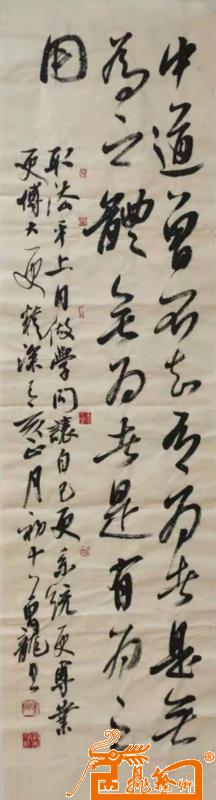 中道曾不知有为者是無
為之體無为者是有为之
用
取法乎上用做學問讓自己更系統更專業
更博大更精深己亥正月初十龍